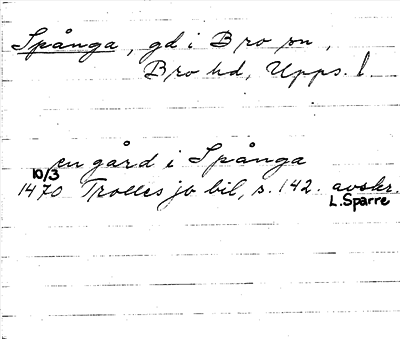 Spånga, gd i Bro sn,
Bro hd, Upps. l.
en gård i Spånga
10/3
1470 Trolles jo bil, s. 142. avskr.
L. Sparre